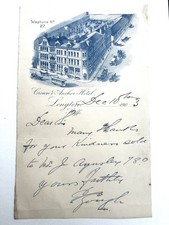 Telephone No
Crown & Anchor Hotel,
Longton Dec 18th 190 3
Dear Sir
Many Thanks
for your Kindness sold
to W. J.
yours faithfully